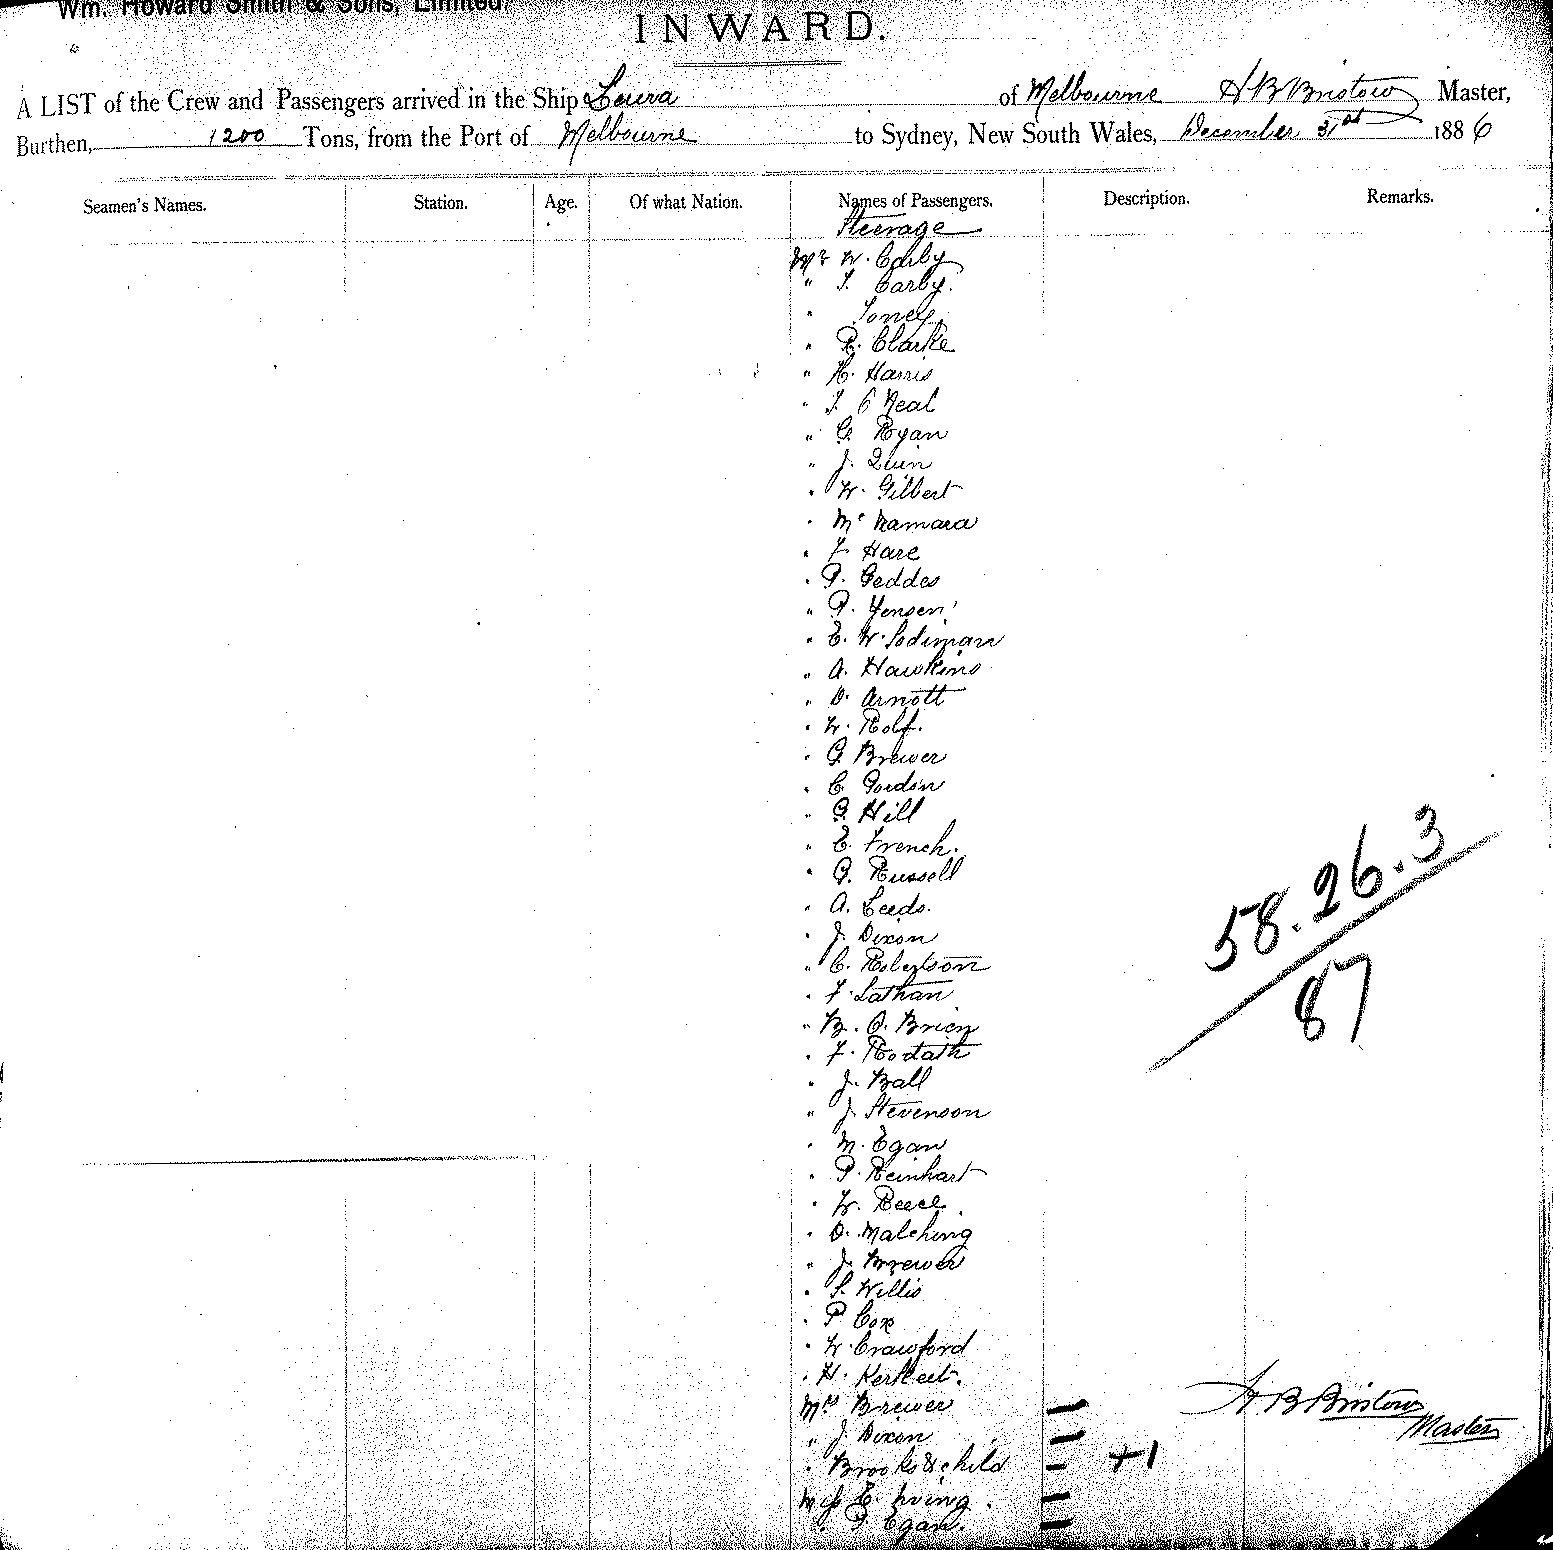 Wm. Howard Smith & Sons, Limited.
INWARD.
A LIST of the Crew and Passengers arrived in the Ship Leura of Melbourne H B Bristow Master,
Burthen, 1200 Tons, from the Port of Melbourne to Sydney, New South Wales, December 31st 1886
Seamen's Names. Station. Age. Of what Nation. Names of Passengers. Description. Remarks.
Steerage
Mr W. Carby
" T. Carby.
"
" R. Clarke
" H. Harris
" T. O Neal
" G. Ryan
" J. Quin
" W. Gilbert
" Mc Namara
" F. Hare
" P. Geddes
" P. Yensen
" E. W. Sodiman
" A. Hawkins
" D. Arnott
" W. Rolf.
" G. Brewer
" C. Gordon
" G. Hill
" E. French.
" G. Russell
" A. Leeds.
" J. Dixon
" C. Robertson
" F. Lathan
" B. O. Brien
" F. Rodath
" J. Ball
" J. Stevenson
" M. Egan
" P. Reinhart
" W. Reece.
" D. Malching
" J. Brewer
" S. Willis
" P. Cox
" W. Crawford
" H.
Mrs Brewer
" J. Dixon
" Brooks & child +1
Miss E. Irving.
" P. Egan.
58.26.3
87
H B Bristow
Master